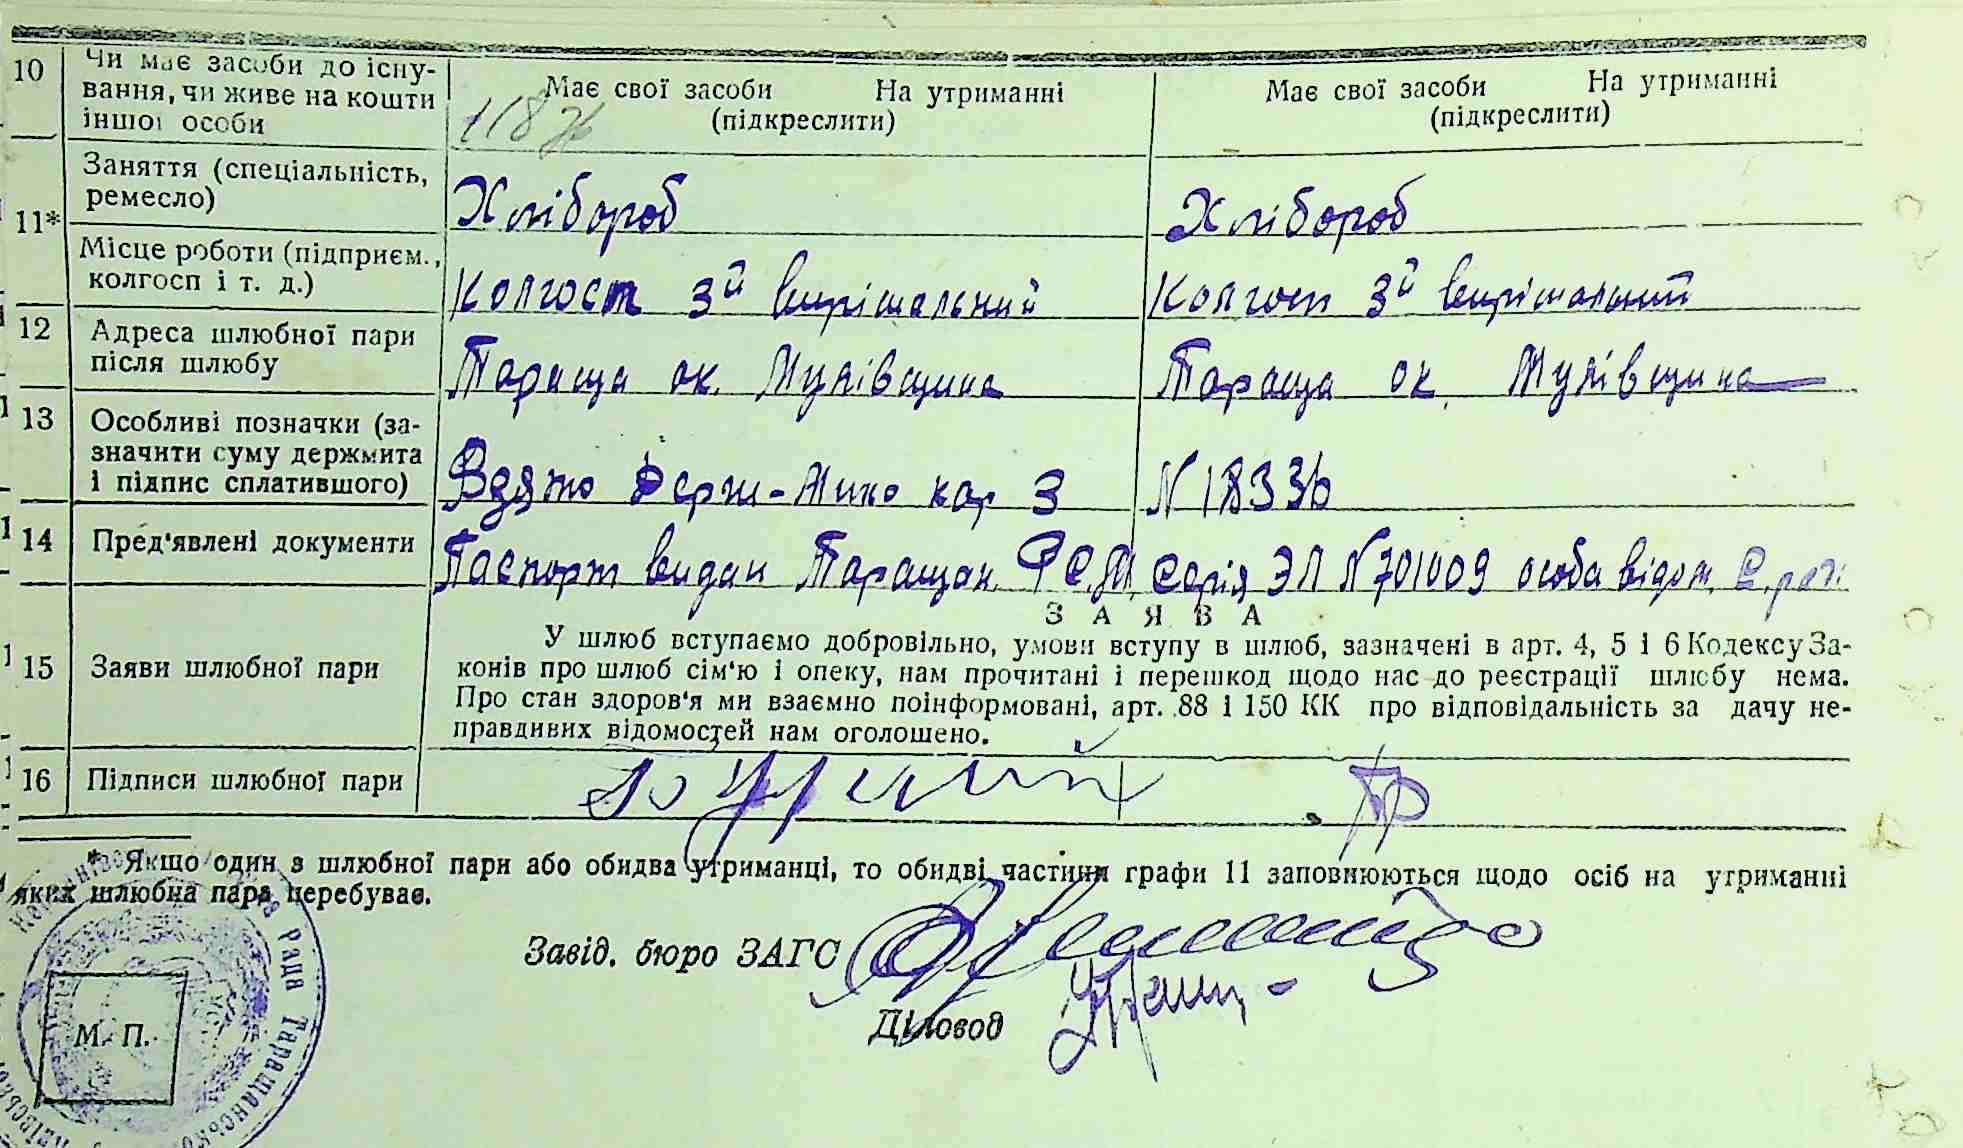 10 Чи має засоби до існу-
вання, чи живе на кошти
іншої особи
Має свої засоби На утриманні
(підкреслити)
Має свої засоби На утриманні
(підкреслити)
118
11* Заняття (спеціальність,
ремесло)
Хлібороб Хлібороб
Місце роботи (підприєм.,
колгосп і т. д.)
Колгосп 3й вирішальний Колгосп 3й вирішальний
12 Адреса шлюбної пари
після шлюбу
Тараща ок. Мулівщина Тараща ок. Мулівщина
13 Особливі позначки (за-
значити суму держмита
і підпис сплатившого)
Взято Держ-Мито кар 3 N 18336
14 Пред'явлені документи
Паспорт видан Таращан. Р.С.М. Серія ЭЛ N701009 особа відом. С.
15 Заяви шлюбної пари
ЗАЯВА
У шлюб вступаємо добровільно, умови вступу в шлюб, зазначені в арт. 4, 5 і 6 Кодексу За-
конів про шлюб сім'ю і опеку, нам прочитані і перешкод щодо нас до реєстрації шлюбу нема.
Про стан здоров'я ми взаємно поінформовані, арт. 88 і 150 КК про відповідальність за дачу не-
правдивих відомостей нам оголошено.
16 Підписи шлюбної пари
* Якщо один з шлюбної пари або обидва утриманці, то обидві частини графи 11 заповнюються щодо осіб на утриманні
яких шлюбна пара перебуває.
Завід. бюро ЗАГС
Діловод
М. П.
Рада Таращансько